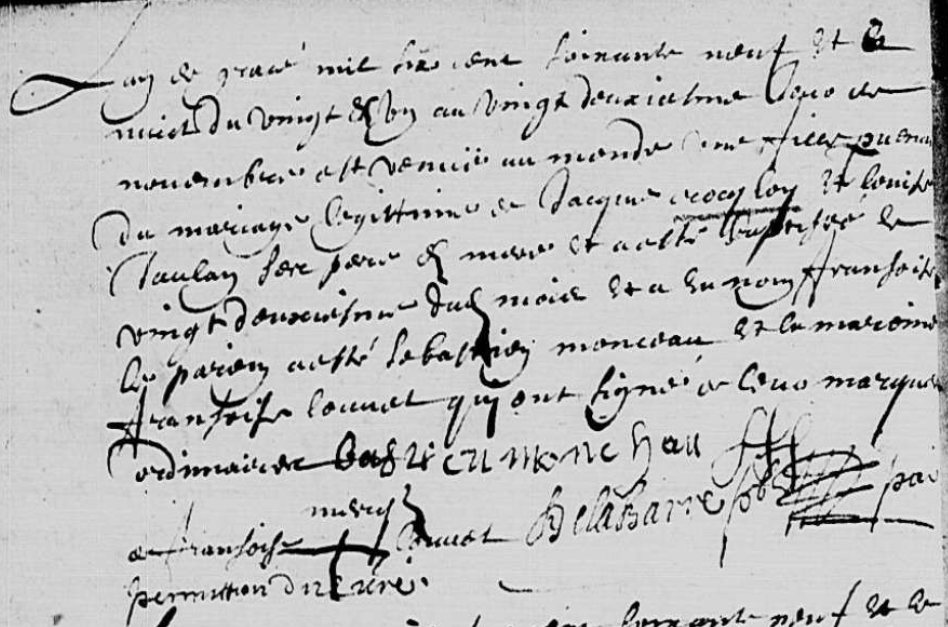 Lan de grace mil six cens soixante neuf et la
nuict du vingt & un au vingt deuxiesme jour de
novembre est venüe au monde une fille provenant
du mariage legittime de Jacque cocqley et Louise
Taulay ses pere & mere et a esté baptisée le
vingt deuxiesme dud mois et a eu nom fransoise
le parein a esté sebastien monceau et la mareine
fransoise Louvet qui ont signé de leur marque
ordinaires bastien monchau
merq
de fransoise Louvet Delabarre pbr par
permition du curé
soixante neuf et le